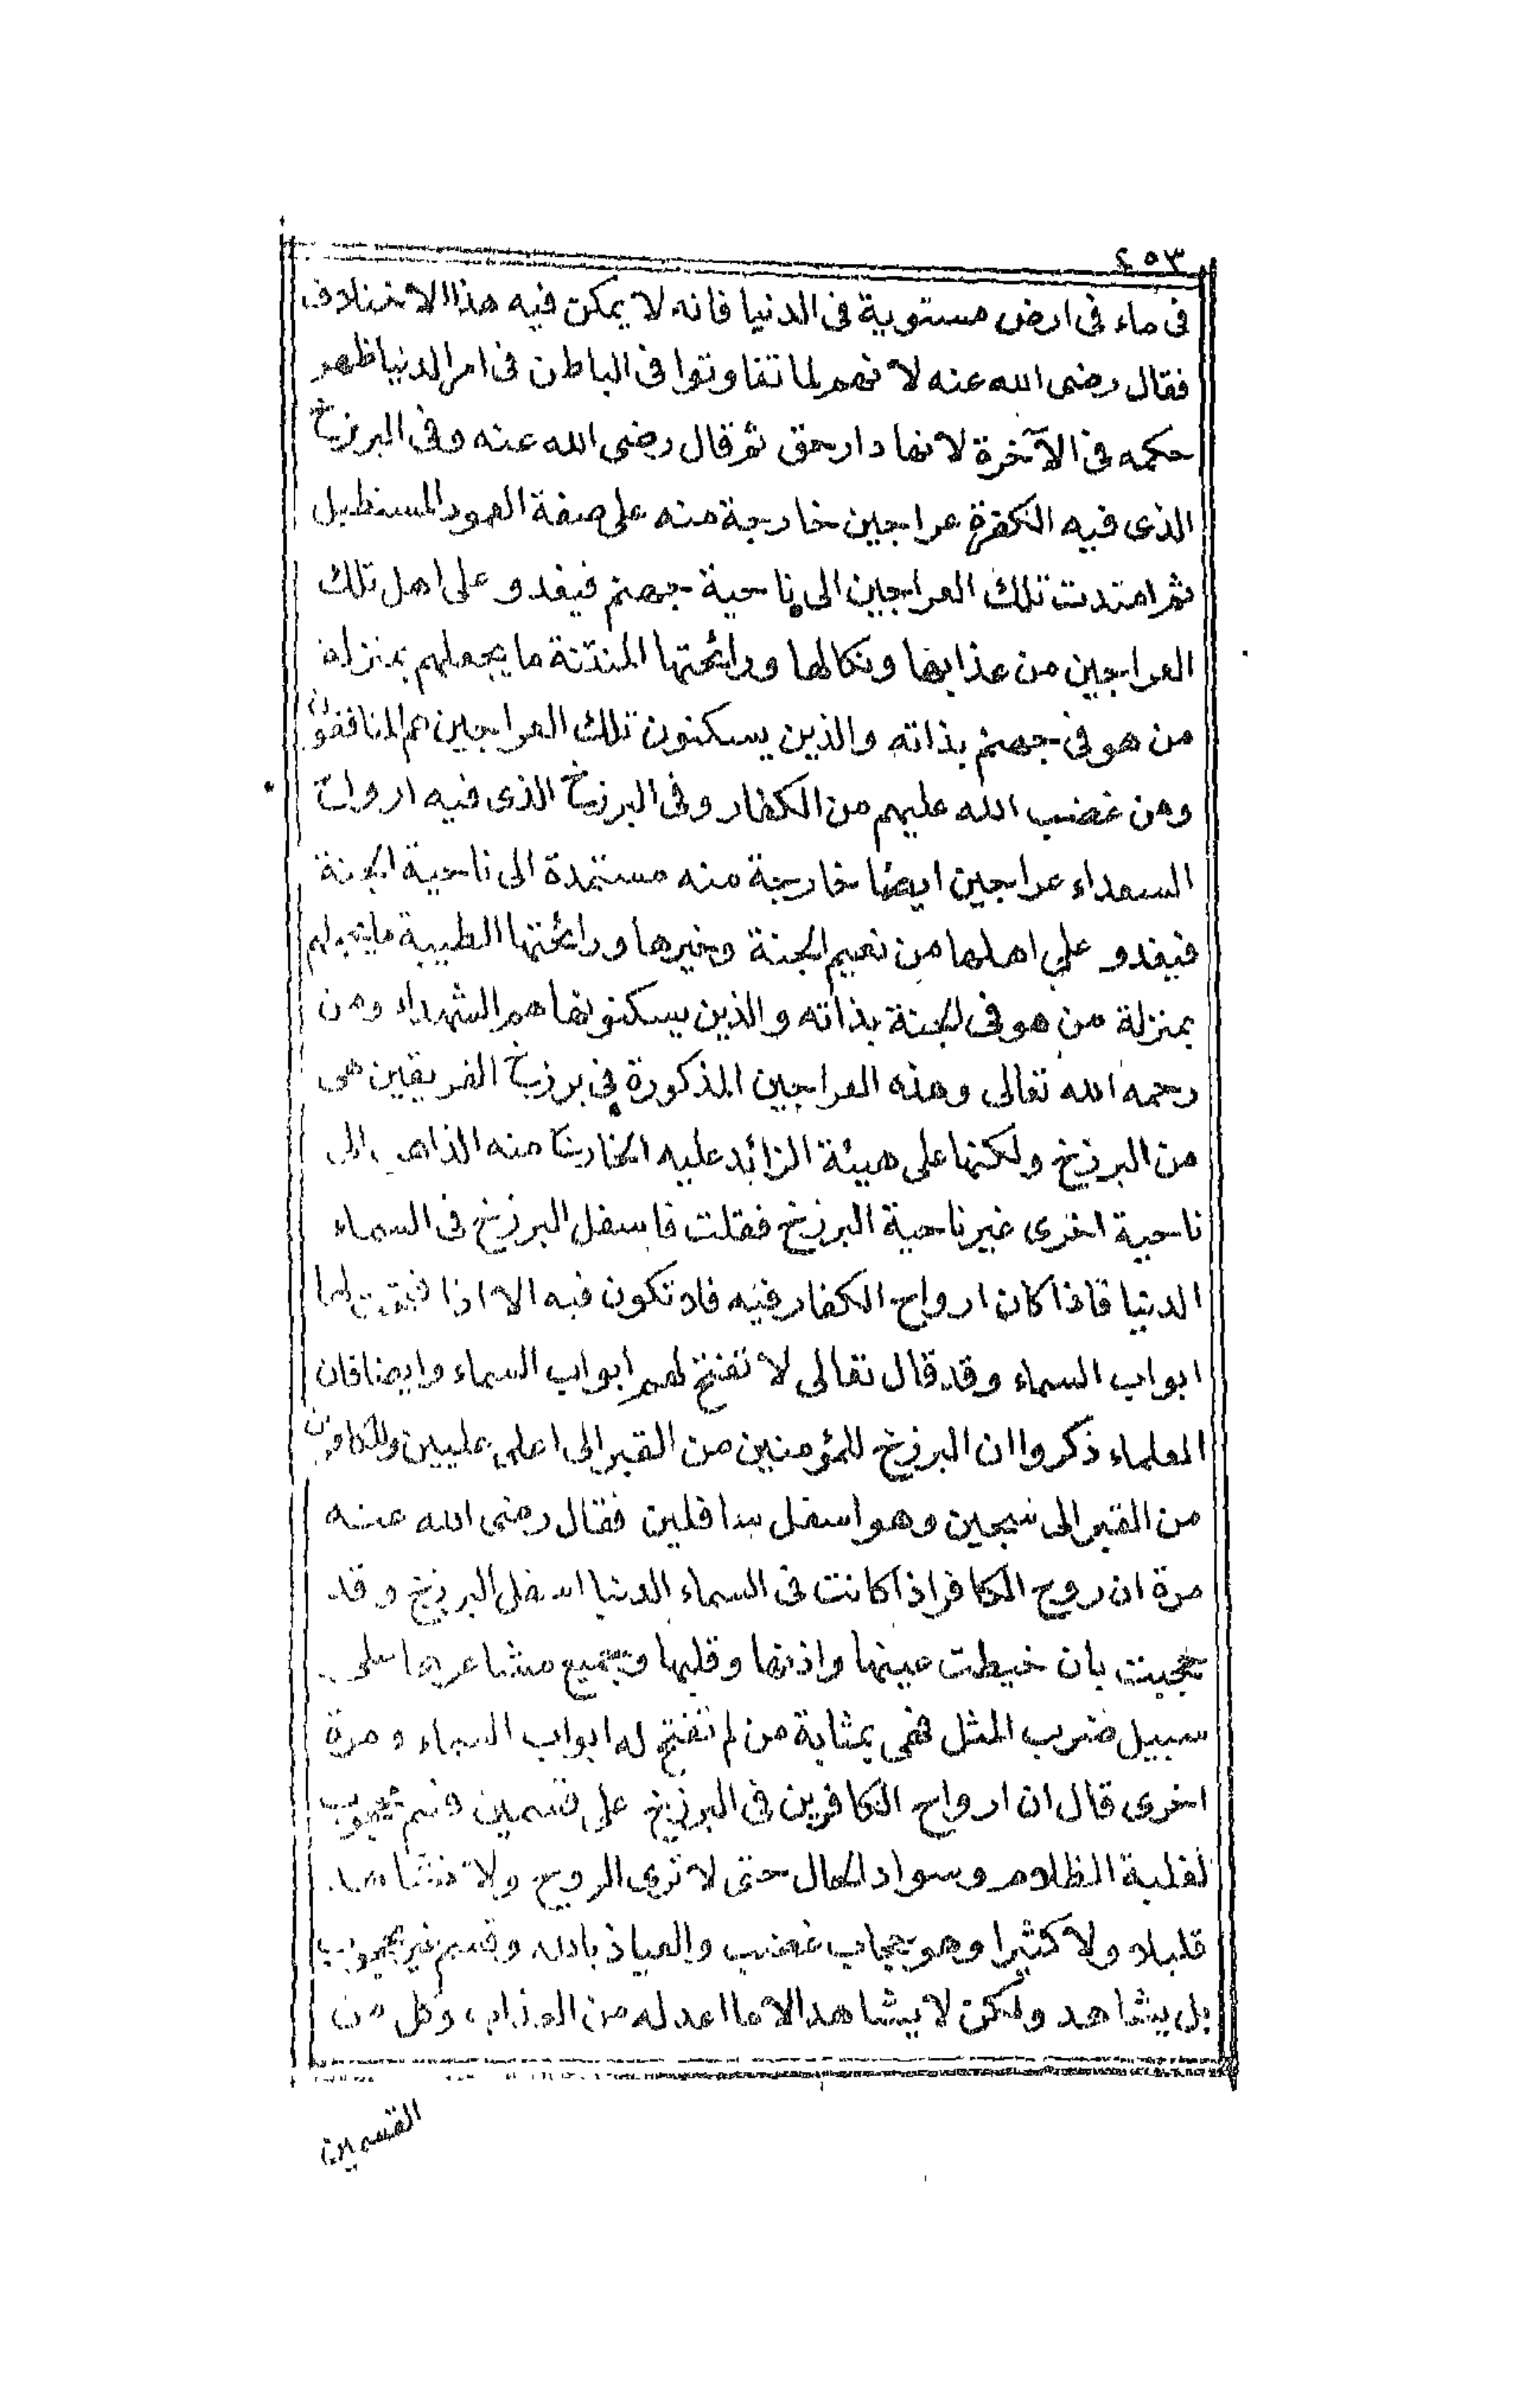 ٤٥٣
فى ماء فى ارض مستوية فى الدنيا فانه لا يمكن فيه هذا الاختلاف
فقال رضى الله عنه لانهم لما تفاوتوا فى الباطن فى امر الدنيا ظهر
حكمه فى الآخرة لانها دار حق ثم قال رضى الله عنه وفى البرزخ
الذى فيه الكفرة عراجين خارجة منه على صفة العمود المستطيل
ثم امتدت تلك العراجين الى ناحية جهنم فيغدو على اهل تلك
العراجين من عذابها ونكالها ورائحتها المنتنة ما يجعلهم بمنزلة
من هو فى جهنم بذاته والذين يسكنون تلك العراجين هم المنافقون
ومن غضب الله عليهم من الكفار وفى البرزخ الذى فيه ارواح
السعداء عراجين ايضا خارجة منه مستمدة الى ناحية الجنة
فيغدو على اهلها من نعيم الجنة وخيرها ورائحتها الطيبة ما يجعلهم
بمنزلة من هو فى الجنة بذاته والذين يسكنونها هم الشهداء ومن
رحمه الله تعالى وهذه العراجين المذكورة فى برزخ الفريقين هى
من البرزخ ولكنها على هيئة الزائد عليه الخارج منه الذاهب الى
ناحية اخرى غير ناحية البرزخ فقلت فاسفل البرزخ فى السماء
الدنيا فاذا كان ارواح الكفار فيه فلا تكون فيه الا اذا فتحت لها
ابواب السماء وقد قال تعالى لا تفتح لهم ابواب السماء وايضا فان
العلماء ذكروا ان البرزخ للمؤمنين من القبر الى اعلى عليين وللكافرين
من القبر الى سجين وهو اسفل سافلين فقال رضى الله عنه
مرة ان روح الكافر اذا كانت فى السماء الدنيا اسفل البرزخ وقد
حجبت بان خيطت عينها واذنها وقلبها وجميع مشاعرها على
سبيل ضرب المثل فهى بمثابة من لم تفتح له ابواب السماء ومرة
اخرى قال ان ارواح الكافرين فى البرزخ على قسمين قسم محجوب
لغلبة الظلام وسواد الحال حتى لا ترى الروح ولا تشاهد
قليلا ولا كثيرا وهو حجاب غضب والعياذ بالله وقسم غير محجوب
بل يشاهد ولكن لا يشاهد الا ما اعد له من العذاب وكل من
القسمين